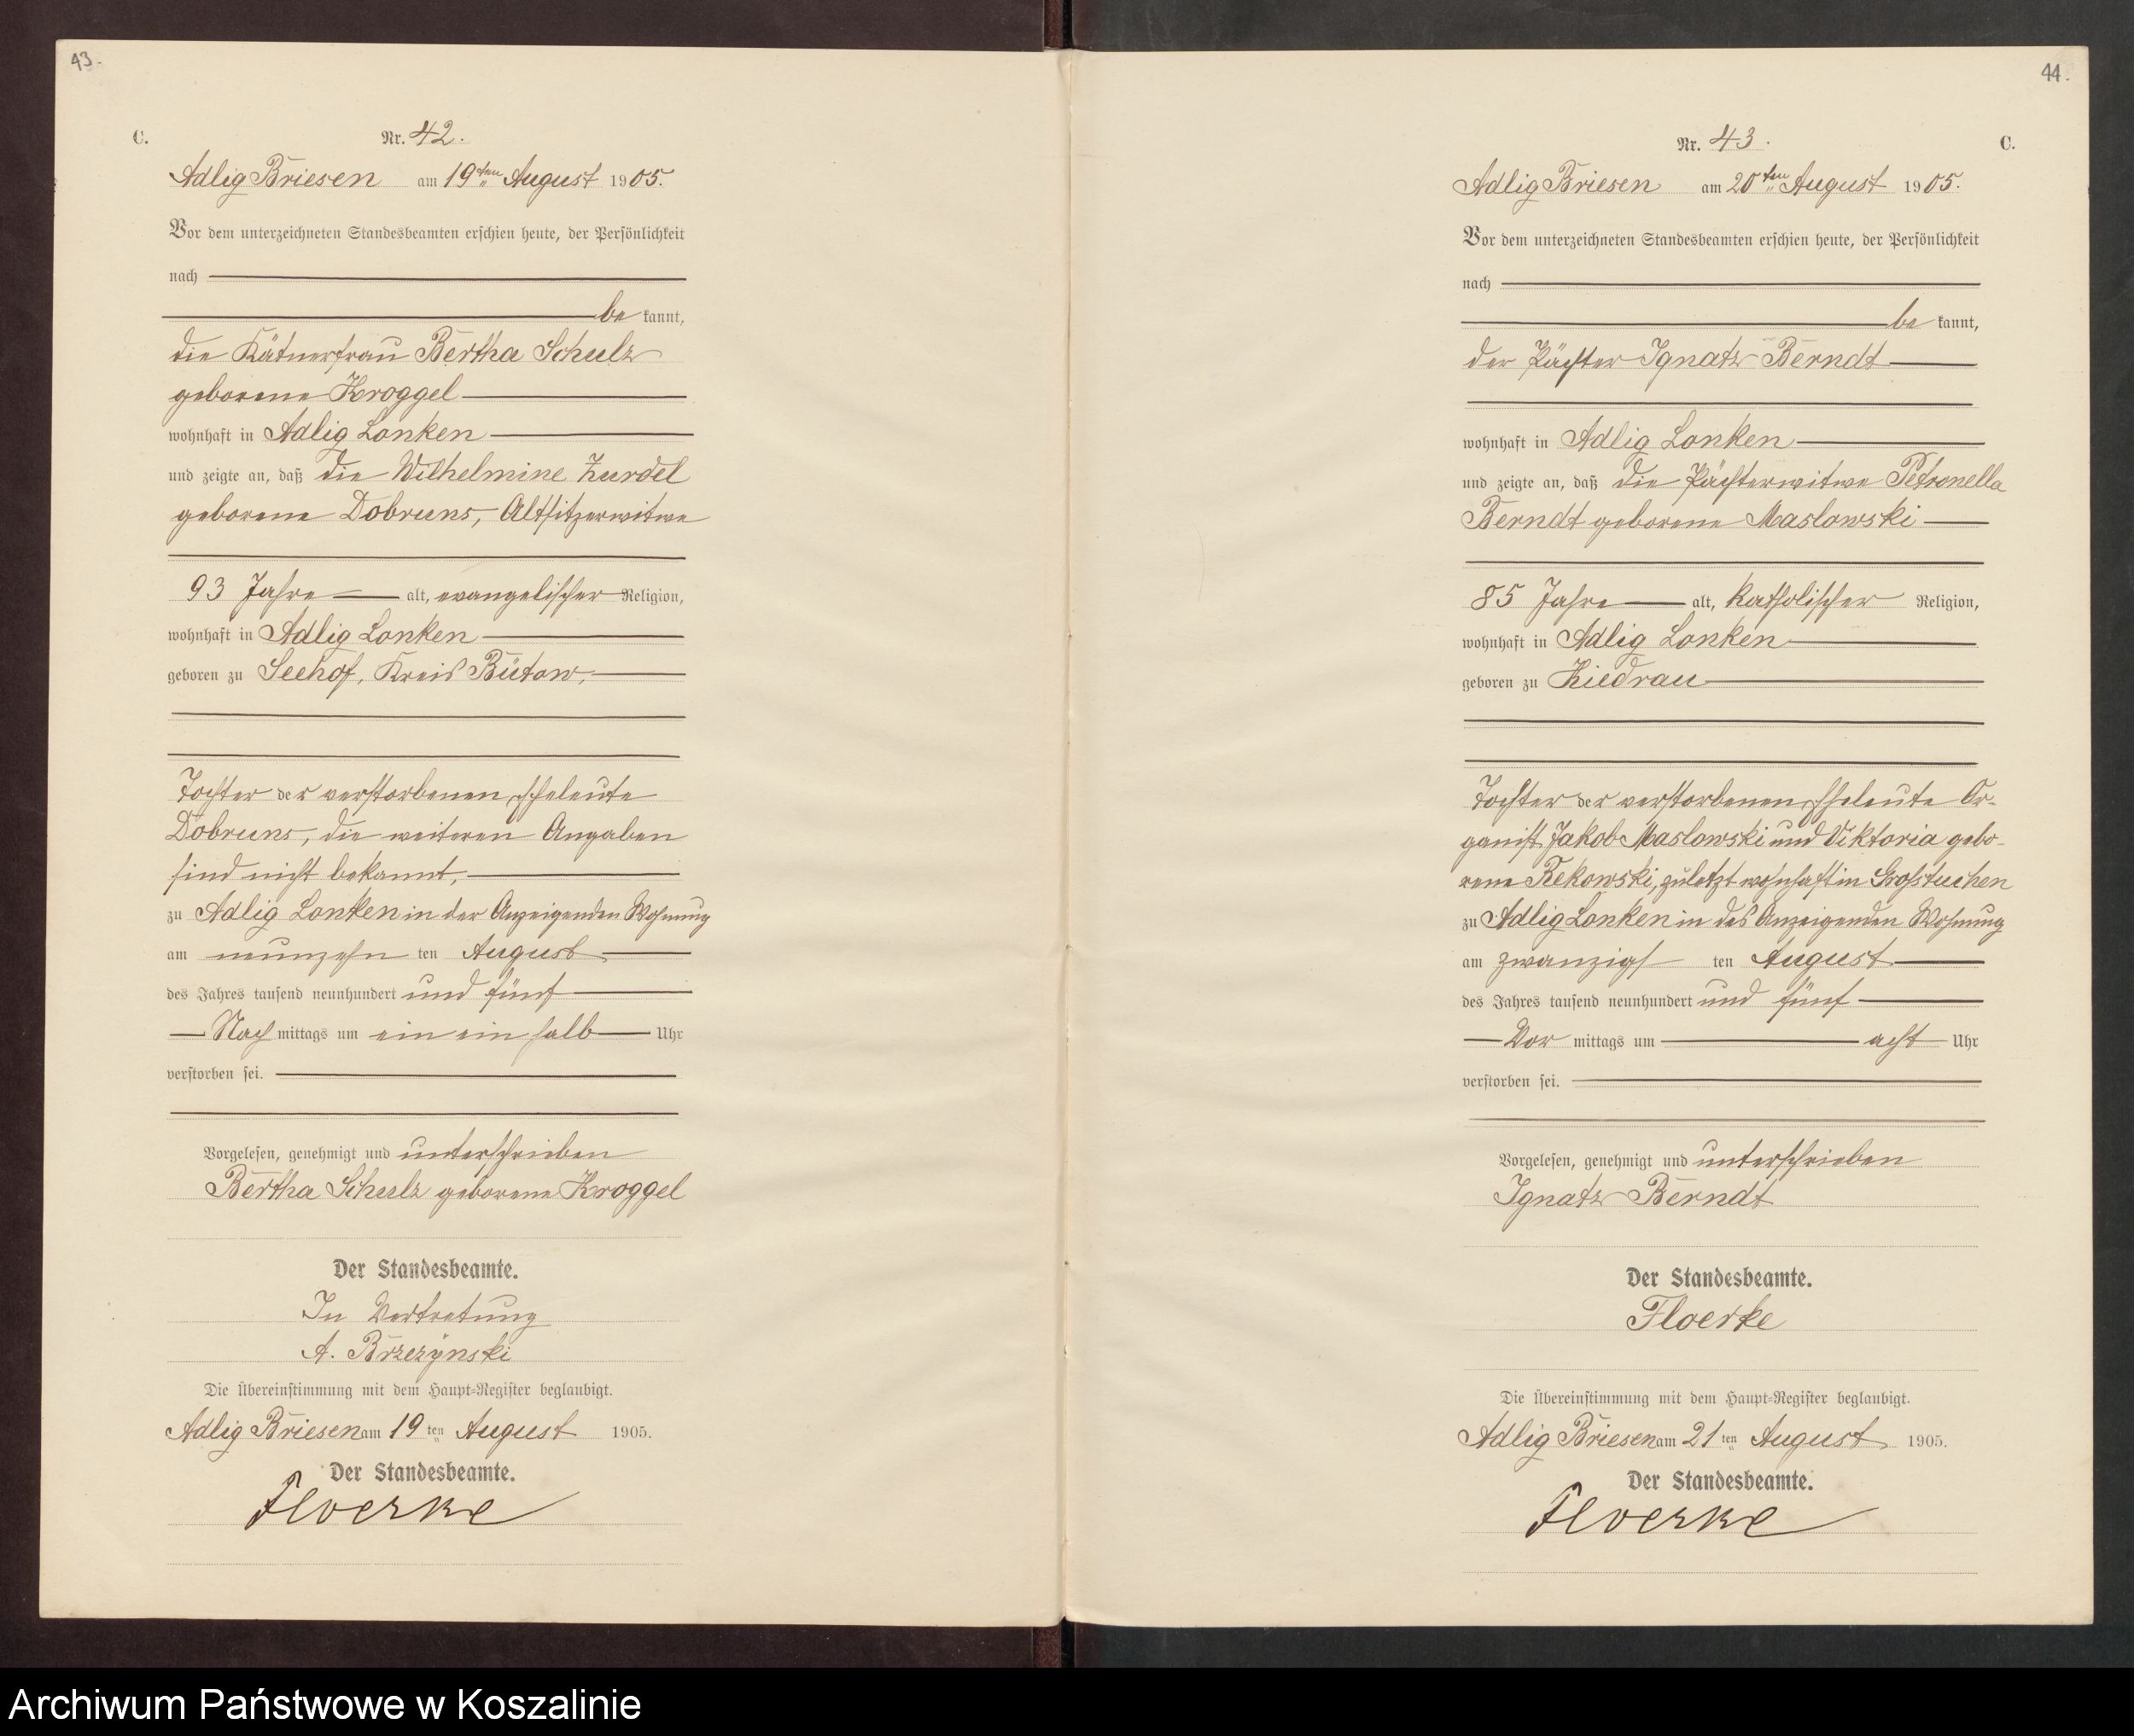 43.
C.
Nr. 42.
Adlig Briesen am 19ten August 1905.
Vor dem unterzeichneten Standesbeamten erschien heute, der Persönlichkeit
nach
be kannt,
die Kätnerfrau Bertha Schulz
geborene Kroggel
wohnhaft in Adlig Lonken
und zeigte an, daß die Wilhelmine Zurdel
geborene Dobruns, Altsitzerwitwe
93 Jahre alt, evangelischer Religion,
wohnhaft in Adlig Lonken
geboren zu Seehof, Kreis Bütow,
Tochter der verstorbenen Eheleute
Dobruns, die weiteren Angaben
sind nicht bekannt,
zu Adlig Lonken in der Anzeigenden Wohnung
am neunzehn ten August
des Jahres tausend neunhundert und fünf
Nach mittags um ein ein halb Uhr
verstorben sei.
Vorgelesen, genehmigt und unterschrieben
Bertha Schulz geborene Kroggel
Der Standesbeamte.
In Vertretung
A. Brzezynski
Die Übereinstimmung mit dem Haupt-Register beglaubigt.
Adlig Briesen am 19 ten August 1905.
Der Standesbeamte.
Floerke
44.
Nr. 43. C.
Adlig Briesen am 20ten August 1905.
Vor dem unterzeichneten Standesbeamten erschien heute, der Persönlichkeit
nach
be kannt,
der Pächter Ignatz Berndt
wohnhaft in Adlig Lonken
und zeigte an, daß die Pächterwitwe Petronella
Berndt geborene Maslowski
85 Jahre alt, katholischer Religion,
wohnhaft in Adlig Lonken
geboren zu Kiedrau
Tochter der verstorbenen Eheleute Or-
ganist Jakob Maslowski und Viktoria gebo-
rene Rekowski, zuletzt wohnhaft in Großtuchen
zu Adlig Lonken in des Anzeigenden Wohnung
am zwanzigs ten August
des Jahres tausend neunhundert und fünf
Vor mittags um acht Uhr
verstorben sei.
Vorgelesen, genehmigt und unterschrieben
Ignatz Berndt
Der Standesbeamte.
Floerke
Die Übereinstimmung mit dem Haupt-Register beglaubigt.
Adlig Briesen am 21 ten August 1905.
Der Standesbeamte.
Floerke
Archiwum Państwowe w Koszalinie